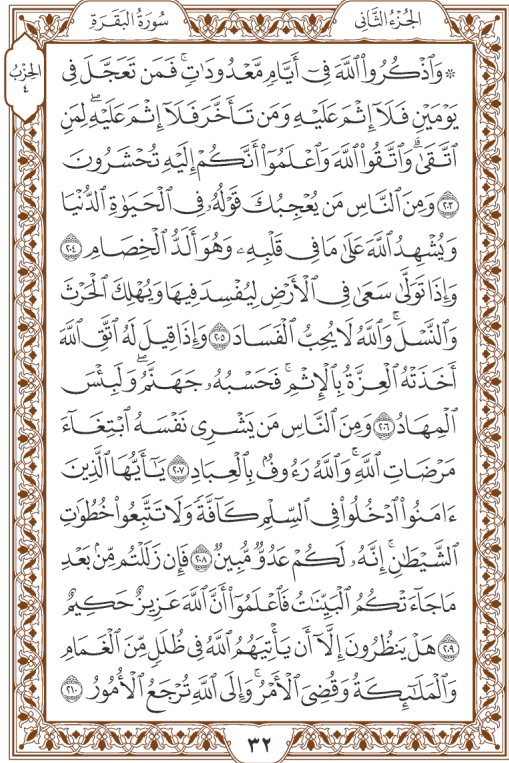 سُورَةُ البَقَرَةِ
الجُزْءُ الثَّانِي
الحِزْبُ
٤
۞ وَٱذْكُرُوا۟ ٱللَّهَ فِىٓ أَيَّامٍ مَّعْدُودَٰتٍ ۚ فَمَن تَعَجَّلَ فِى
يَوْمَيْنِ فَلَآ إِثْمَ عَلَيْهِ وَمَن تَأَخَّرَ فَلَآ إِثْمَ عَلَيْهِ ۖ لِمَنِ
ٱتَّقَىٰ ۗ وَٱتَّقُوا۟ ٱللَّهَ وَٱعْلَمُوٓا۟ أَنَّكُمْ إِلَيْهِ تُحْشَرُونَ
٢٠٣ وَمِنَ ٱلنَّاسِ مَن يُعْجِبُكَ قَوْلُهُۥ فِى ٱلْحَيَوٰةِ ٱلدُّنْيَا
وَيُشْهِدُ ٱللَّهَ عَلَىٰ مَا فِى قَلْبِهِۦ وَهُوَ أَلَدُّ ٱلْخِصَامِ ٢٠٤
وَإِذَا تَوَلَّىٰ سَعَىٰ فِى ٱلْأَرْضِ لِيُفْسِدَ فِيهَا وَيُهْلِكَ ٱلْحَرْثَ
وَٱلنَّسْلَ ۗ وَٱللَّهُ لَا يُحِبُّ ٱلْفَسَادَ ٢٠٥ وَإِذَا قِيلَ لَهُ ٱتَّقِ ٱللَّهَ
أَخَذَتْهُ ٱلْعِزَّةُ بِٱلْإِثْمِ ۚ فَحَسْبُهُۥ جَهَنَّمُ ۚ وَلَبِئْسَ
ٱلْمِهَادُ ٢٠٦ وَمِنَ ٱلنَّاسِ مَن يَشْرِى نَفْسَهُ ٱبْتِغَآءَ
مَرْضَاتِ ٱللَّهِ ۗ وَٱللَّهُ رَءُوفٌۢ بِٱلْعِبَادِ ٢٠٧ يَٰٓأَيُّهَا ٱلَّذِينَ
ءَامَنُوا۟ ٱدْخُلُوا۟ فِى ٱلسِّلْمِ كَآفَّةً وَلَا تَتَّبِعُوا۟ خُطُوَٰتِ
ٱلشَّيْطَٰنِ ۚ إِنَّهُۥ لَكُمْ عَدُوٌّ مُّبِينٌ ٢٠٨ فَإِن زَلَلْتُم مِّنۢ بَعْدِ
مَا جَآءَتْكُمُ ٱلْبَيِّنَٰتُ فَٱعْلَمُوٓا۟ أَنَّ ٱللَّهَ عَزِيزٌ حَكِيمٌ
٢٠٩ هَلْ يَنظُرُونَ إِلَّآ أَن يَأْتِيَهُمُ ٱللَّهُ فِى ظُلَلٍ مِّنَ ٱلْغَمَامِ
وَٱلْمَلَٰٓئِكَةُ وَقُضِىَ ٱلْأَمْرُ ۚ وَإِلَى ٱللَّهِ تُرْجَعُ ٱلْأُمُورُ ٢١٠
٣٢